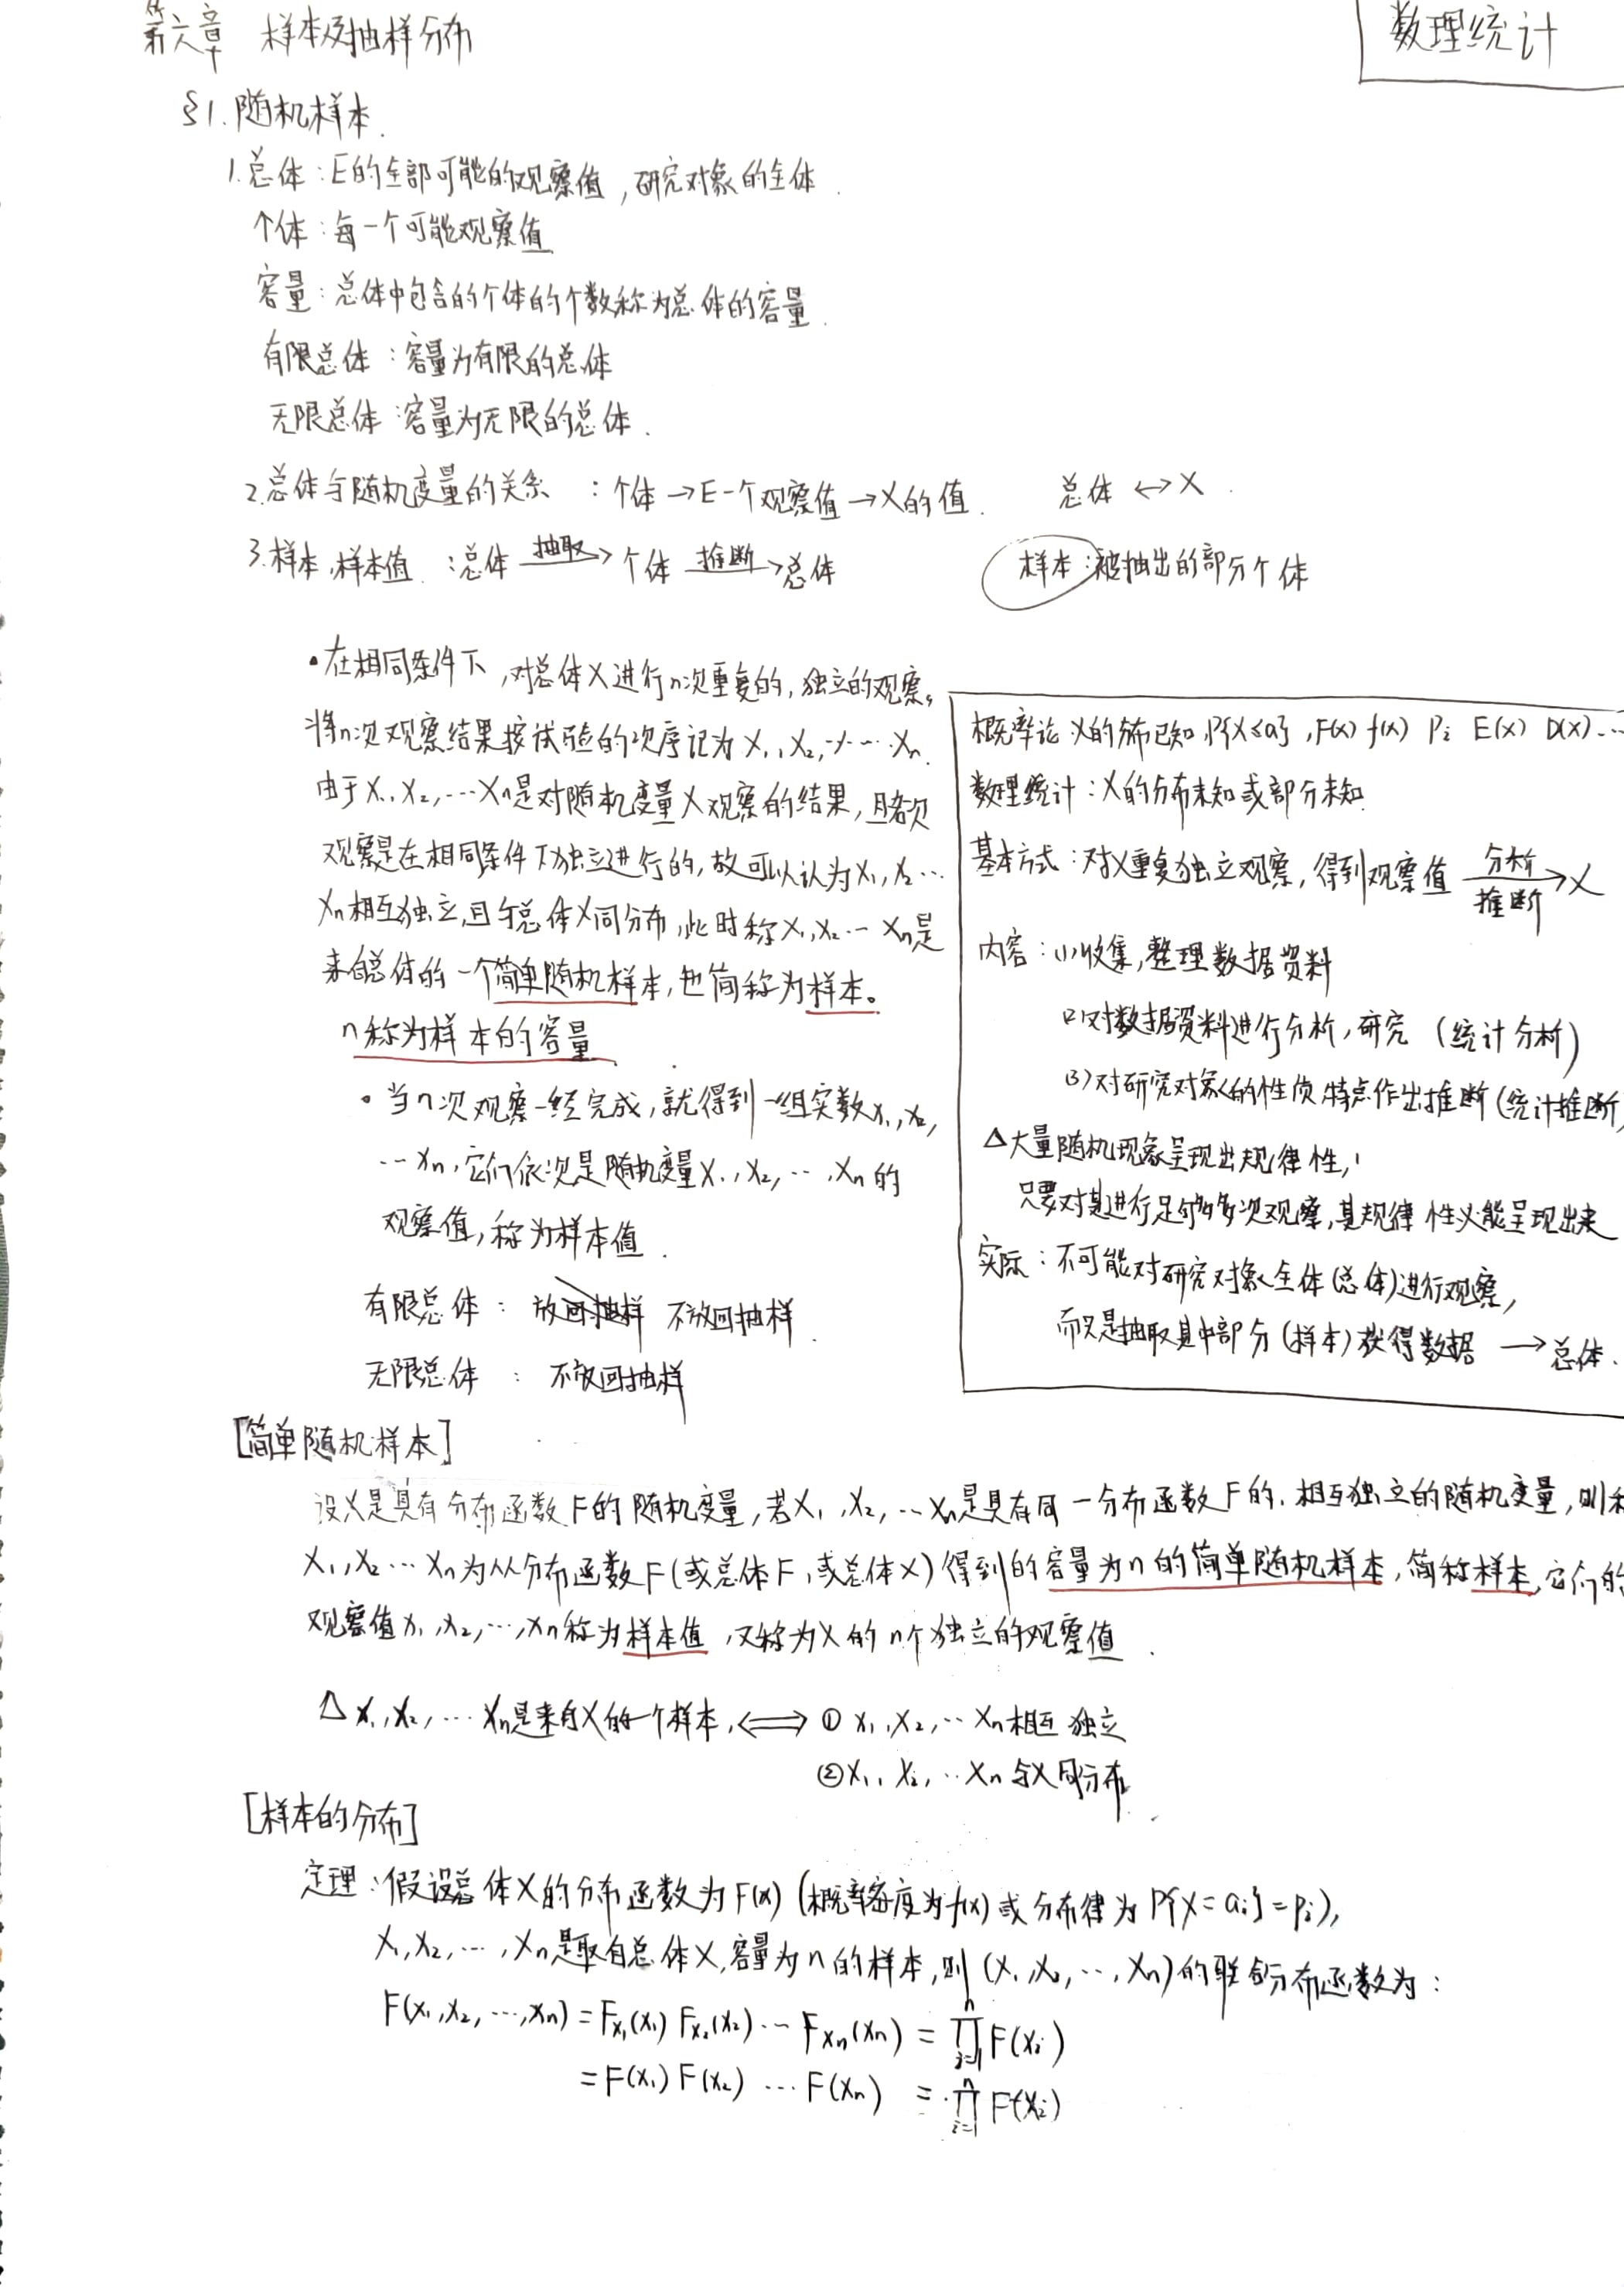 第六章 样本及抽样分布
数理统计
§1.随机样本.
1.总体:E的全部可能的观察值,研究对象的全体.
个体:每一个可能观察值
容量:总体中包含的个体的个数称为总体的容量.
有限总体:容量为有限的总体
无限总体:容量为无限的总体.
2.总体与随机变量的关系:个体→E一个观察值→X的值. 总体↔X.
3.样本,样本值.:总体 抽取→ 个体 推断→ 总体 样本:被抽出的部分个体
•在相同条件下,对总体X进行n次重复的,独立的观察。
将n次观察结果按试验的次序记为X1,X2,…Xn.
由于X1,X2,…Xn是对随机变量X观察的结果,且各次
观察是在相同条件下独立进行的,故可以认为X1,X2…
Xn相互独立,且与总体X同分布,此时称X1,X2…Xn是
来自总体的一个简单随机样本,也简称为样本。
n称为样本的容量
•当n次观察一经完成,就得到一组实数x1,x2,
…xn,它们依次是随机变量X1,X2,…,Xn的
观察值,称为样本值.
有限总体:放回抽样 不放回抽样.
无限总体:不放回抽样
概率论 X的分布已知,P{X≤a},F(x) f(x) Pi E(x) D(x)…
数理统计:X的分布未知或部分未知.
基本方式:对X重复独立观察,得到观察值 分析 推断→X
内容:(1)收集,整理数据资料
(2)对数据资料进行分析,研究(统计分析)
(3)对研究对象的性质,特点作出推断(统计推断)
△大量随机现象呈现出规律性,
只要对其进行足够多次观察,其规律性必能呈现出来
实际:不可能对研究对象全体(总体)进行观察,
而只是抽取其中部分(样本)获得数据→总体.
[简单随机样本]
设X是具有分布函数F的随机变量,若X1,X2,…Xn是具有同一分布函数F的,相互独立的随机变量,则称
X1,X2…Xn为从分布函数F(或总体F,或总体X)得到的容量为n的简单随机样本,简称样本,它们的
观察值x1,x2,…,xn称为样本值,又称为X的n个独立的观察值.
△X1,X2,…Xn是来自X的一个样本,⟺①X1,X2,…Xn相互独立
②X1,X2,…Xn与X同分布
[样本的分布]
定理:假设总体X的分布函数为F(x)(概率密度为f(x)或分布律为P{X=ai}=pi),
X1,X2,…,Xn是取自总体X,容量为n的样本,则(X1,X2,…,Xn)的联合分布函数为:
F(x1,x2,…,xn)=Fx1(x1)Fx2(x2)…Fxn(xn)=∏(i=1→n)F(xi)
=F(x1)F(x2)…F(xn)=∏(i=1→n)F(xi)